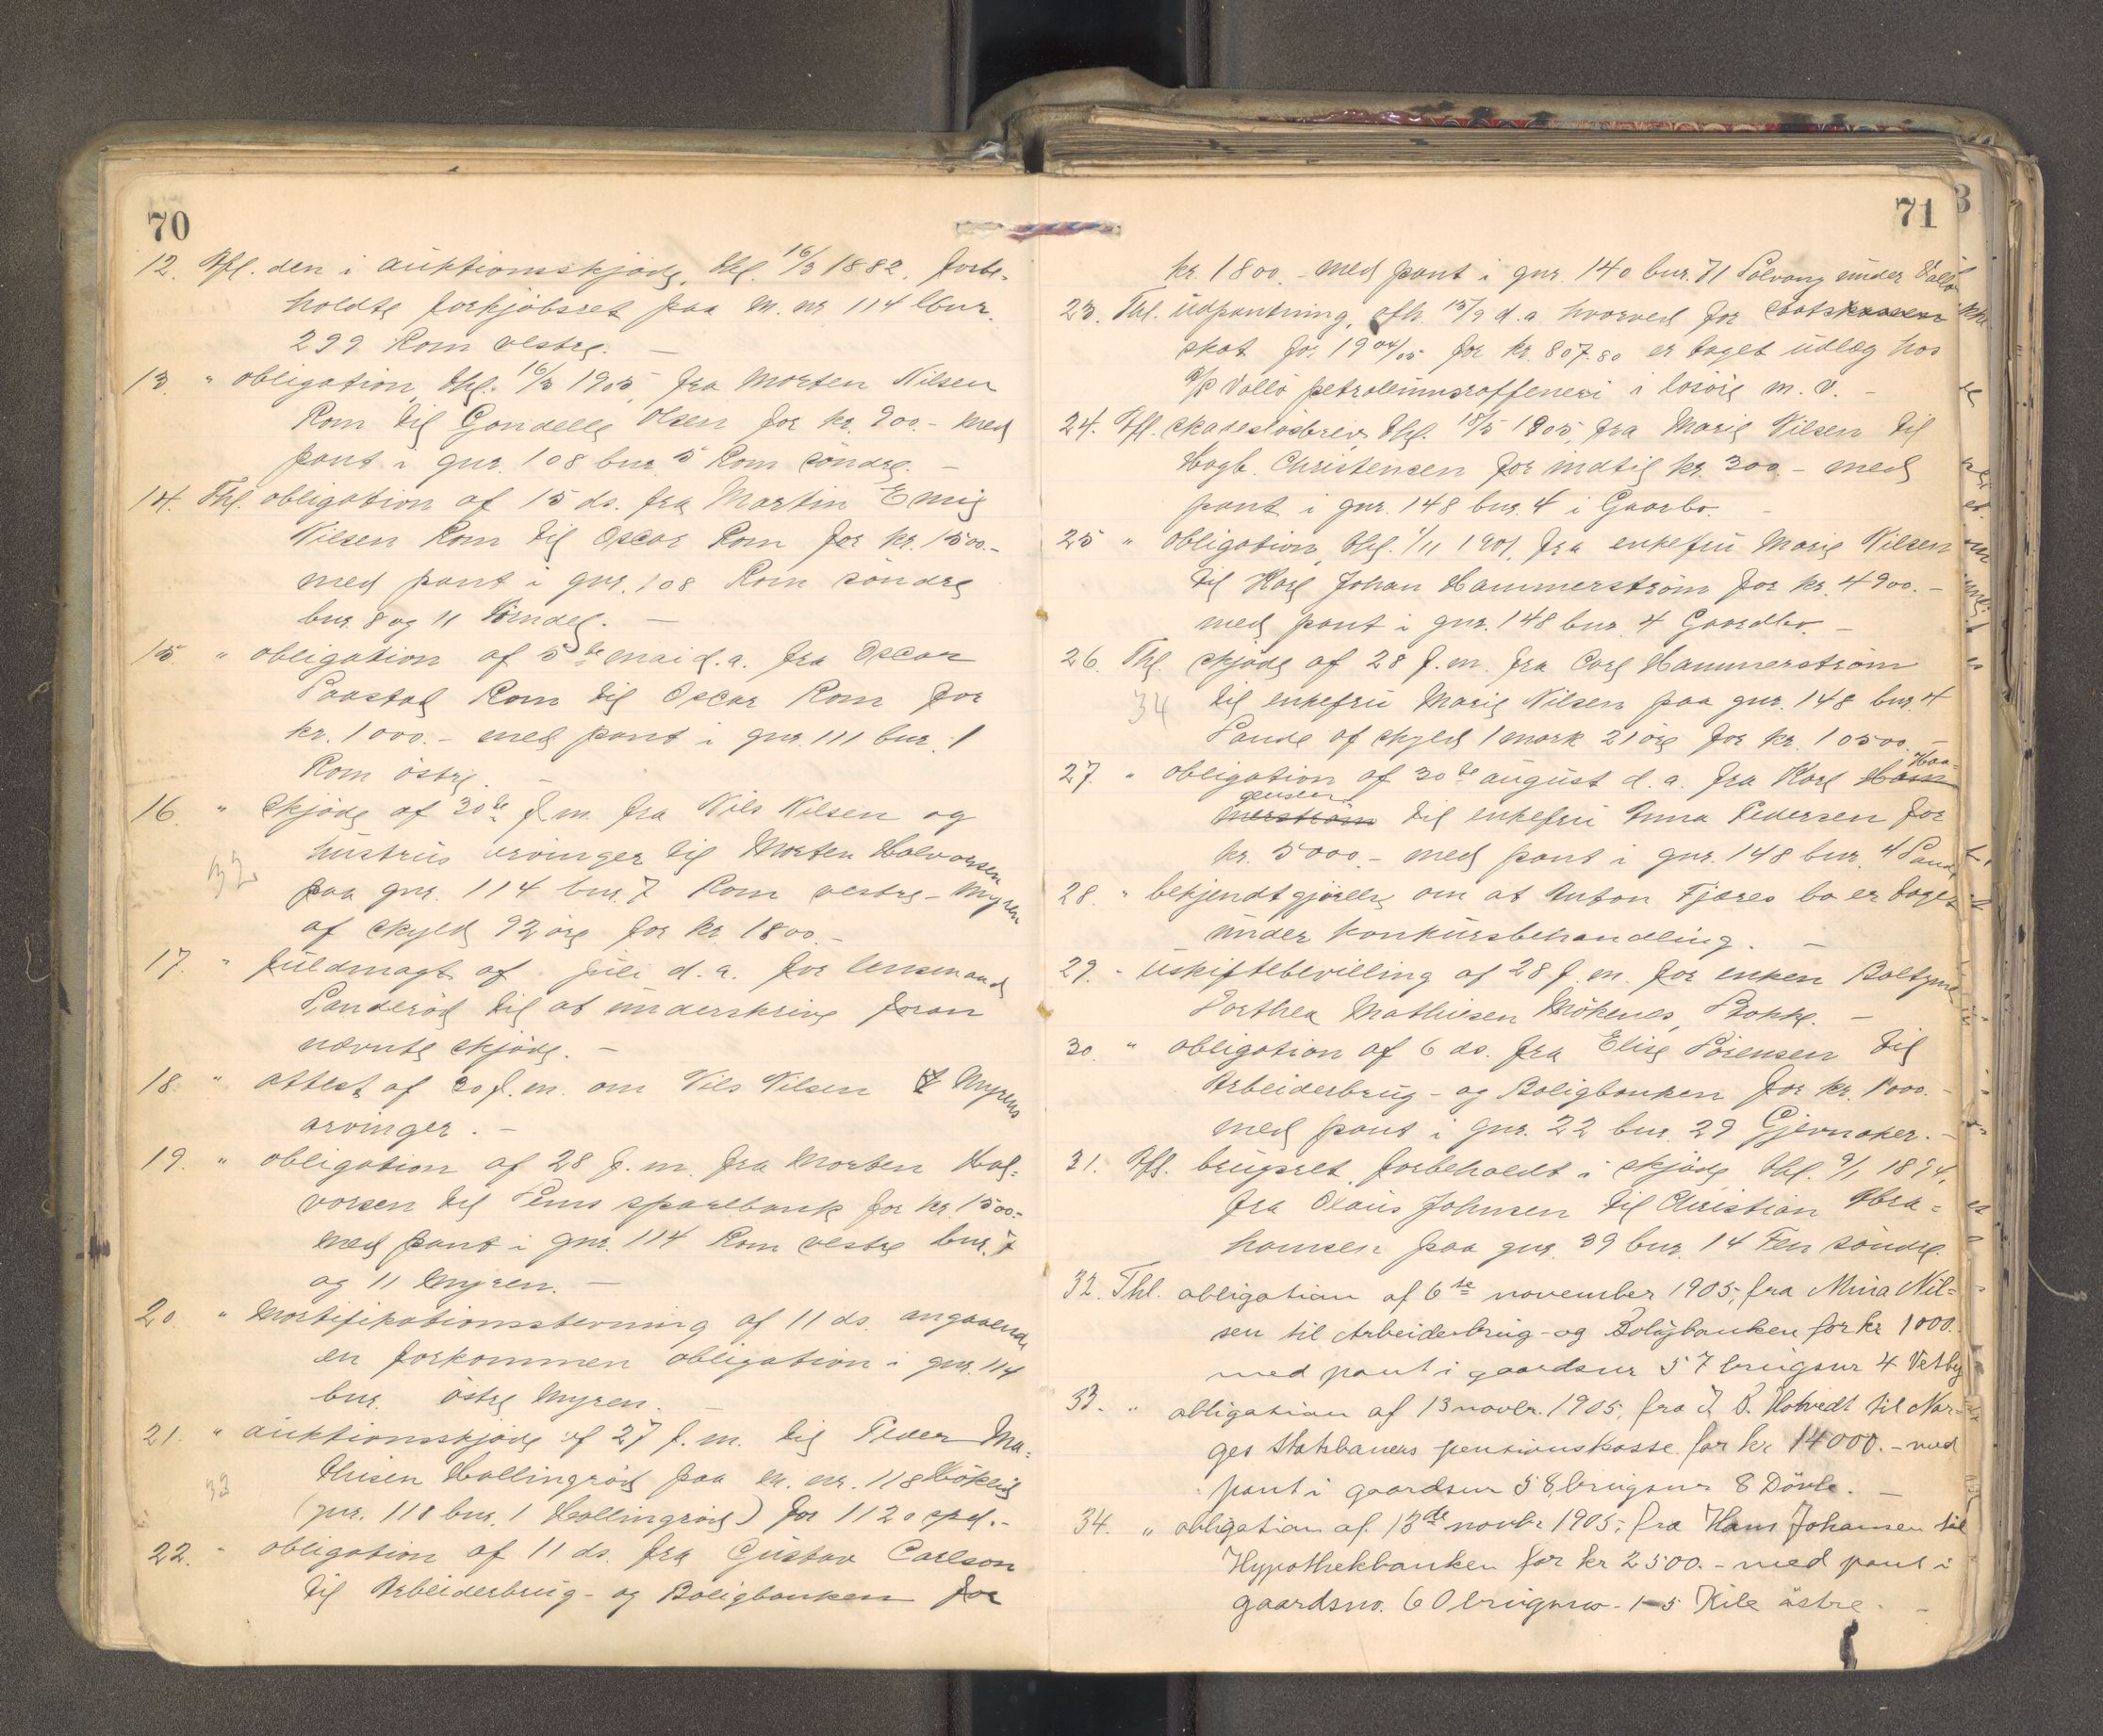 70
12. Afl. den i auktionsskjöde, thl. 16/3 1882, forbe-
holdte forkjöbsret paa m. nr 114 lbnr.
299 Rom vestre. —
13. " obligation, thl. 16/3 1905, fra Morten Nilsen
Rom til Gondelle Olsen for kr. 900.- med
pant i gnr. 108 bnr 5 Rom söndre. —
14. Thl. obligation af 15 ds. fra Martin Emig
Nilsen Rom til Oscar Rom for kr. 1500.-
med pant i gnr. 108 Rom söndre
bnr. 8 og 11 —
15 " obligation af 5te mai d.a. fra Oscar
Paastad Rom til Oscar Rom for
kr. 1000.- med pant i gnr. 111 bnr. 1
Rom östre. —
16. " Skjöde af 30te f.m. fra Nils Nilsen og
hustrus arvinger til Morten Halvorsen
32
paa gnr. 114 bnr. 7 Rom vestre - Myren
af skyld 92 öre for kr 1800.-
17. " fuldmagt af juli d.a. for lensmand
Sanderöd til at underskrive foran
nævnte skjöde. —
18. " attest af 30 f.m. om Nils Nilsen Myrens
arvinger. —
19. " obligation af 28 f.m. fra Morten Hal-
vorsen til Sems sparebank for kr. 1500.-
med pant i gnr. 114 Rom vestre bnr. 7
og 11 Myren. —
20. " Mortifikationsstevning af 11 ds. angaaende
en forkommen obligation i gnr. 114
bnr. östre Myren. —
21. " auktionsskjöde af 27 f.m. til Peder Ma-
thisen Hallingröd paa m. nr. 118 Hökelid
33
(gnr. 118 bnr. 1 Hallingröd) for 1120 spd.-
22. " obligation af 11 ds. fra Gustav Carlson
til Arbeiderbrug- og Boligbanken for
71
kr. 1800.- med pant i gnr. 140 bnr. 71 Solvang under Vallö
23. Thl. udpantning, afh. 15/9 d.a. hvorved for statskassen
skat for 1904/05 for kr. 807.80 er taget udlæg hos
A/S Vallö petroleumsraffeneri i lösöre m.v. —
24. Afl. skadeslösbrev, thl. 15/5 1905, fra Marie Nilsen til
Hagb. Christensen for indtil kr. 300.- med
pant i gnr. 148 bnr. 4 i Gaarbo. —
25 " obligation, thl. 1/11 1901, fra enkefru Marie Nilsen
til Karl Johan Hammerström for kr. 4900.-
med pant i gnr. 148 bnr. 4 Gaardbo. —
26. Thl. skjöde af 28 f.m. fra Carl Hammerström
34
til enkefru Marie Nilsen paa gnr. 148 bnr. 4
Sande af skyld 1 mark 21 öre for kr. 10500.-
27. " obligation af 30te august d.a. fra Karl Ham Haa-
gensen
merström til enkefru Anna Pedersen for
kr. 5000.- med pant i gnr. 148 bnr. 4 Sande
28. " bekjendtgjörelse om at Anton Fjæres bo er taget
under konkursbehandling. —
29. " uskiftebevilling af 28 f.m. for enken
Dorthea Mathiesen Mökenes, —
30. " obligation af 6 ds. fra Elise Sörensen til
Arbeiderbrug- og Boligbanken for kr. 1000.-
med pant i gnr. 22 bnr. 29 Gjervaker. —
31. Afl. brugsret, forbeholdt i skjöde, thl. 9/1 1894,
fra Olaus Johnsen til Christian Abra-
hamsen paa gnr. 39 bnr. 14 Fen söndre.
32. Thl. obligation af 6te november 1905, fra Mina Nil-
sen til Arbeiderbrug- og Boligbanken for kr 1000.
med pant i gaardsnr 57 brugsnr 4 Vestby
33. " obligation af 13 novbr. 1905, fra J. P. Hotvedt til Nor-
ges Statsbaners pensionskasse for kr 14000.- med
pant i gaardsnr 58, brugsnr 8 Dövle. —
34. " obligation af 13de novbr 1905, fra Hans Johansen til
Hypothekbanken for kr 2500.- med pant i
gaardsno. 60 brugsno. 1-5 Kile östre. —